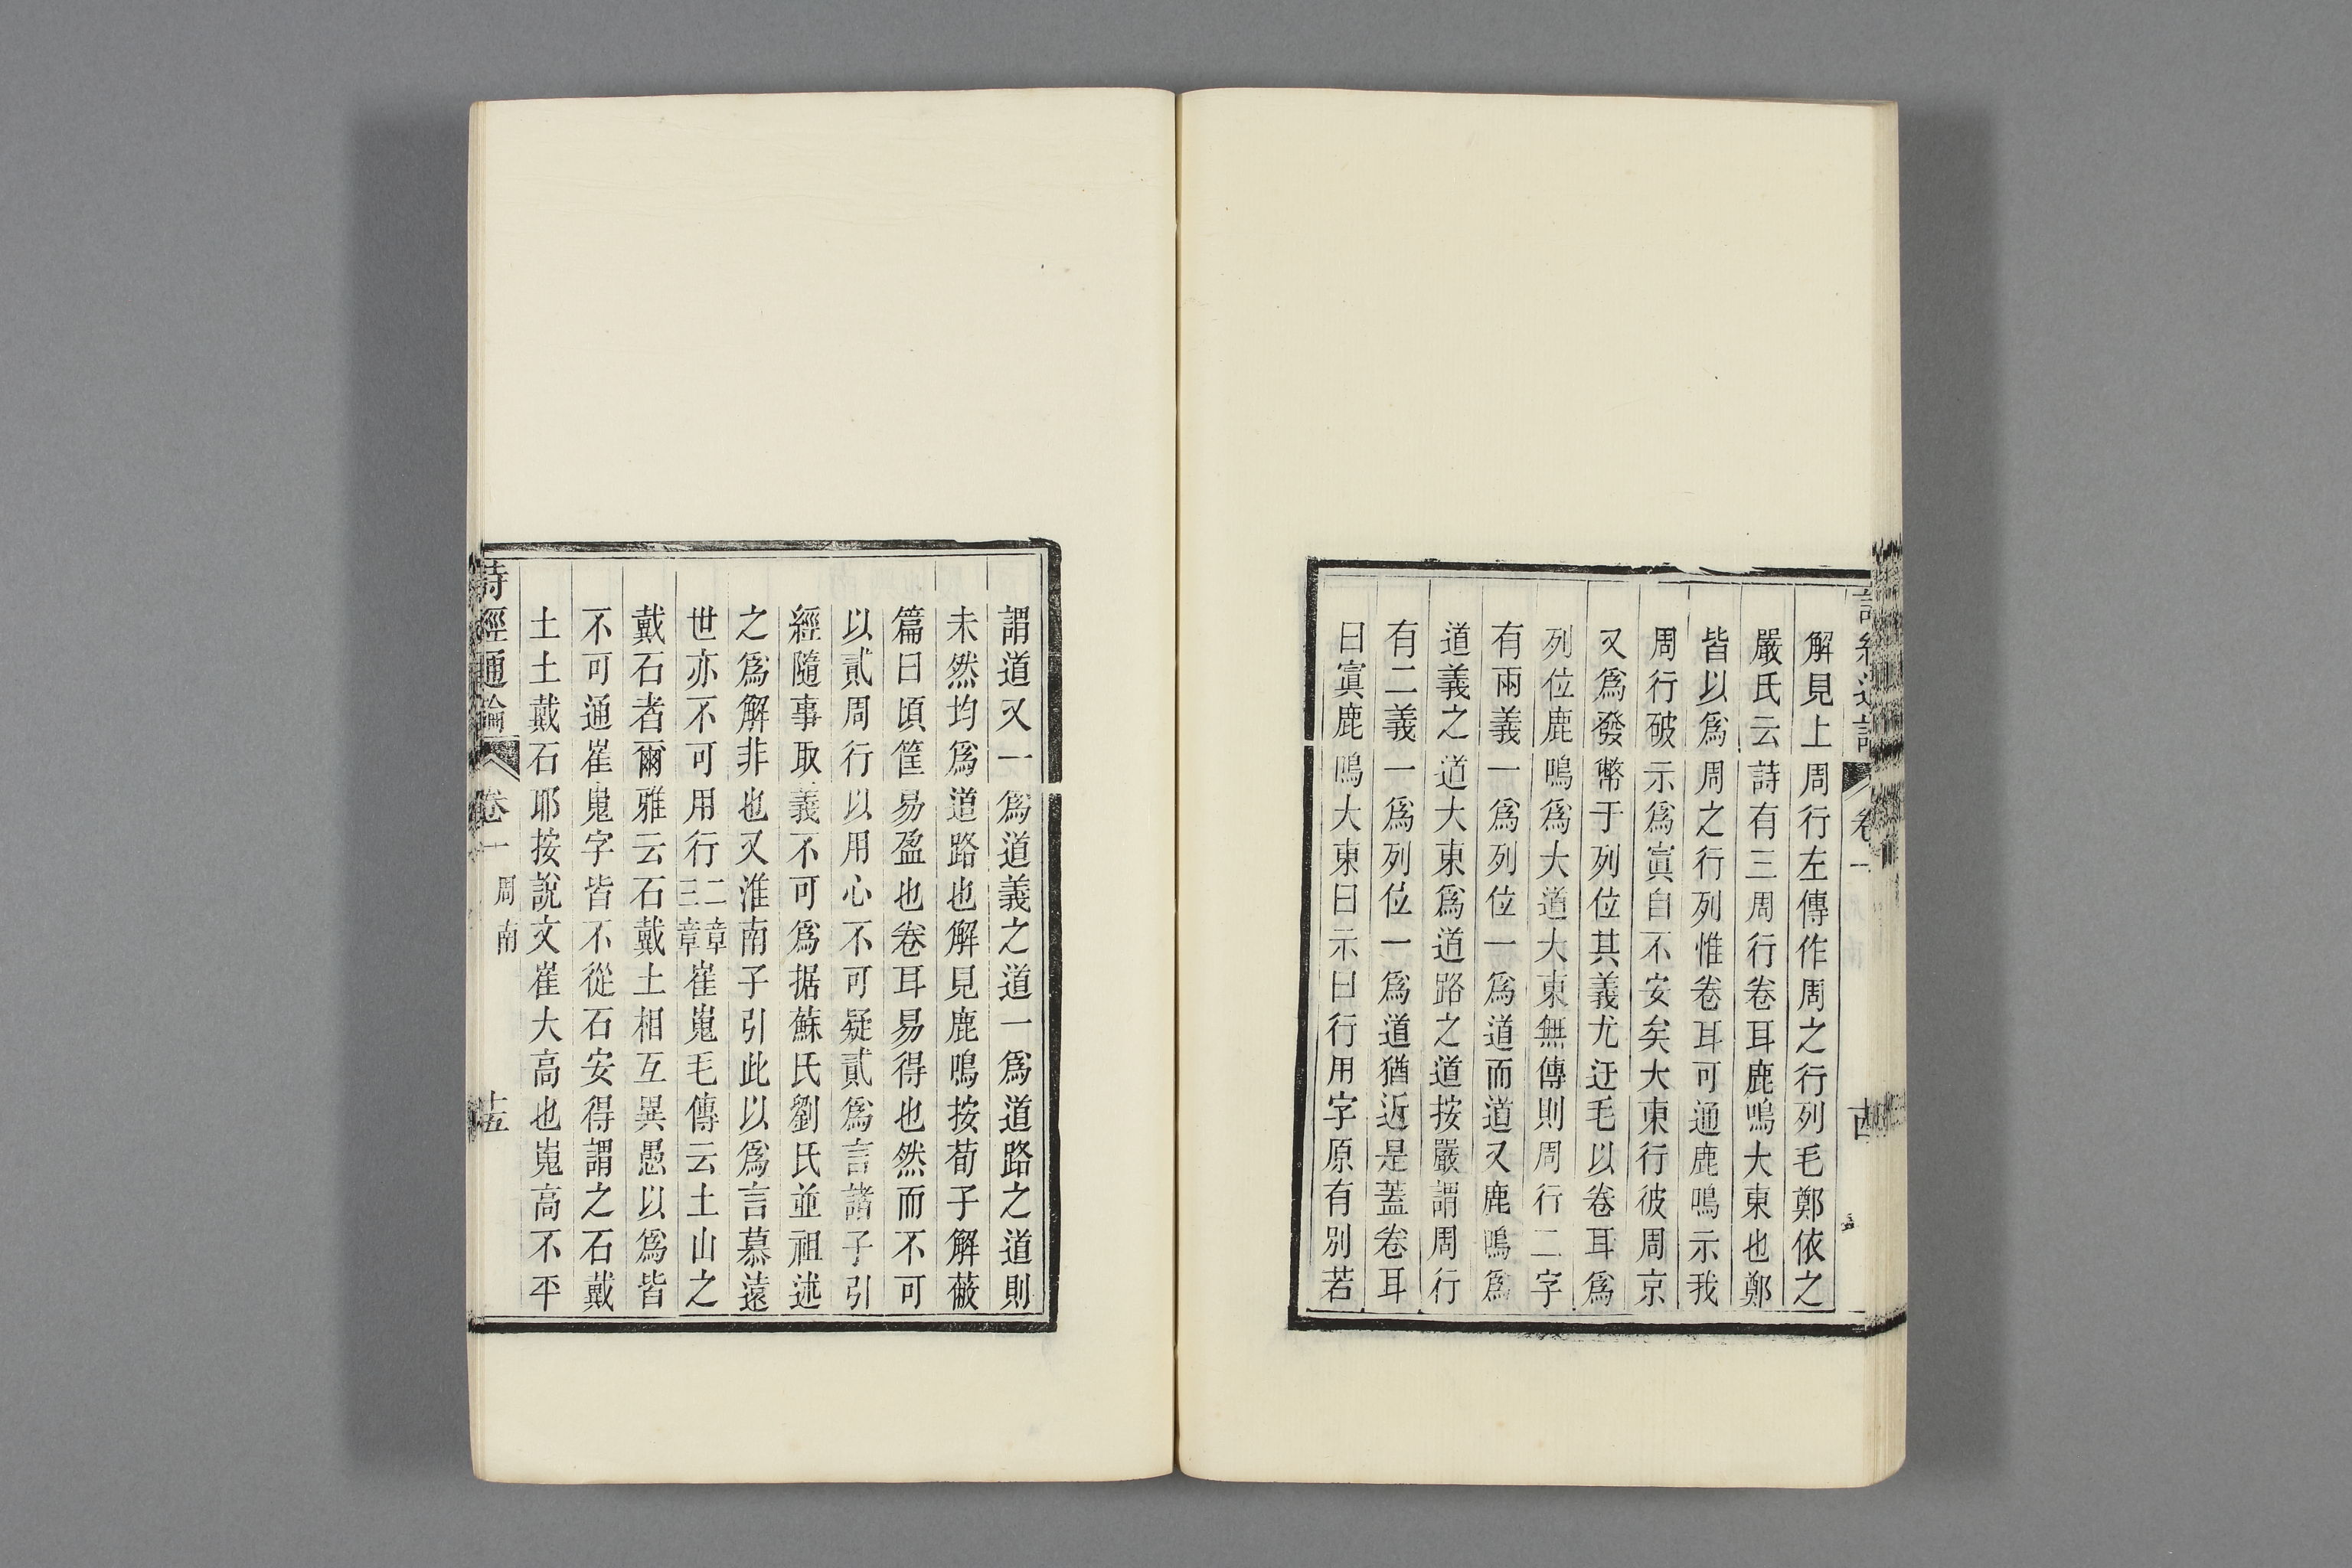 解見上周行左傳作周之行列毛鄭依之
嚴氏云詩有三周行卷耳鹿鳴大東也鄭
皆以爲周之行列惟卷耳可通鹿鳴示我
周行破示爲寘自不安矣大東行彼周京
又爲發幣于列位其義尤迂毛以卷耳爲
列位鹿鳴爲大道大東無傳則周行二字
有兩義一爲列位一爲道而道又鹿鳴爲
道義之道大東爲道路之道按嚴謂周行
有二義一爲列位一爲道猶近是蓋卷耳
曰寘鹿鳴大東曰示曰行用字原有別若
謂道又一爲道義之道一爲道路之道則
未然均爲道路也解見鹿鳴按荀子解蔽
篇曰頃筐易盈也卷耳易得也然而不可
以貳周行以用心不可疑貳爲言諸子引
經隨事取義不可爲据蘇氏劉氏並祖述
之爲解非也又淮南子引此以爲言慕遠
世亦不可用行二章三章崔嵬毛傳云土山之
戴石者爾雅云石戴土相互異愚以爲皆
不可通崔嵬字皆不從石安得謂之石戴
土土戴石耶按說文崔大高也嵬高不平
詩經通論 卷一 周南 十五